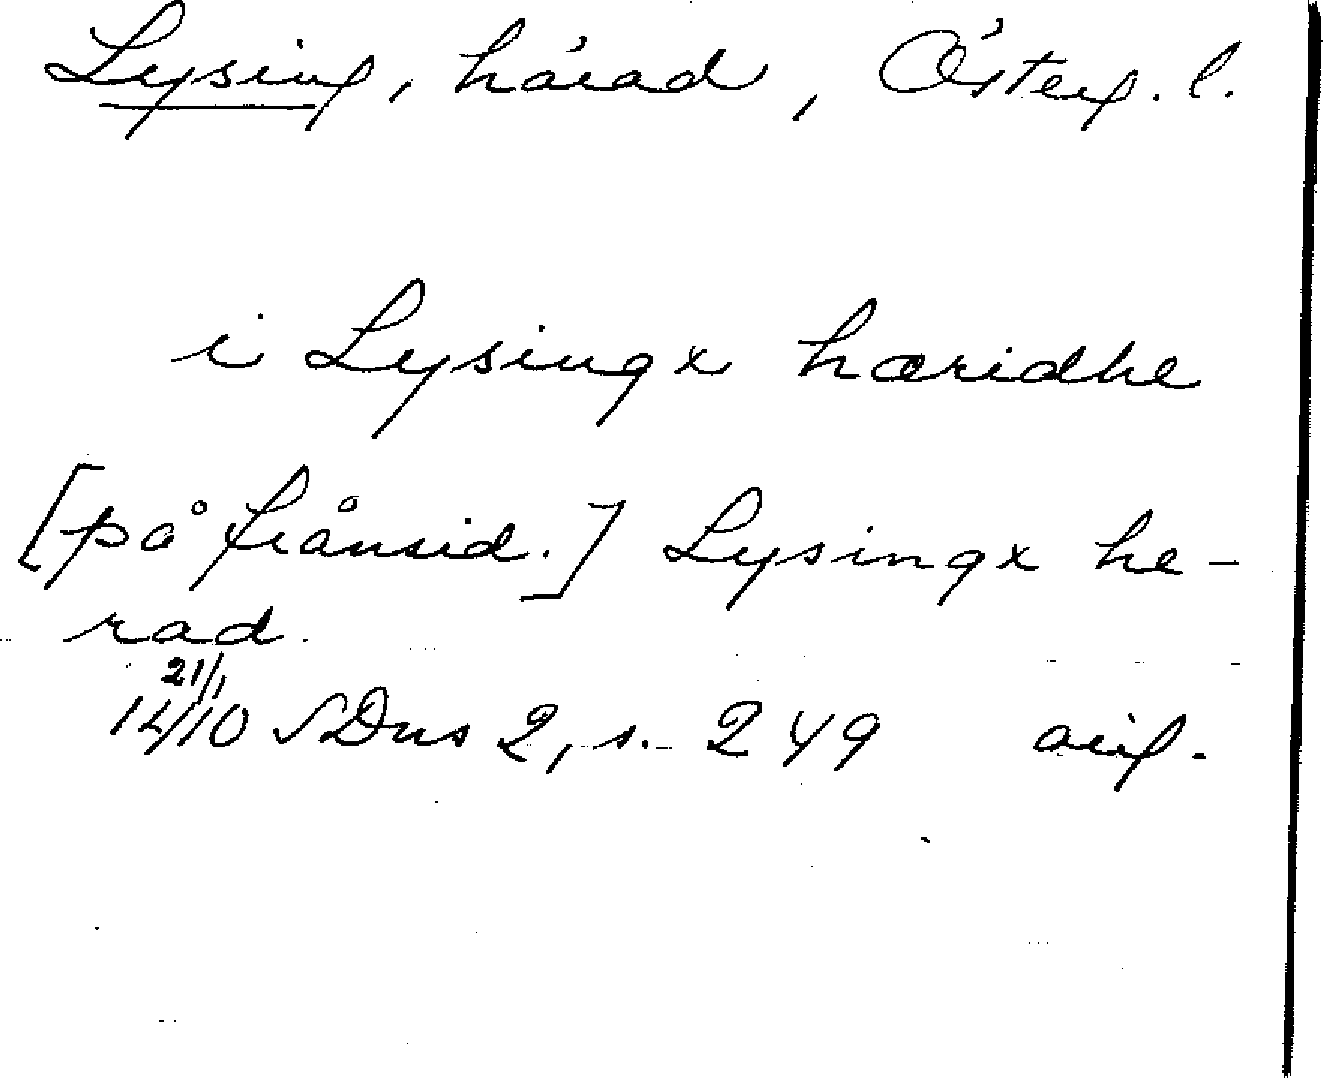 Lysing, härad, Österg. l.
i Lysingx hæridhe
[på frånsid.] Lysingx he-
rad.
21/1
1410 SDns 2, s. 249 orig.